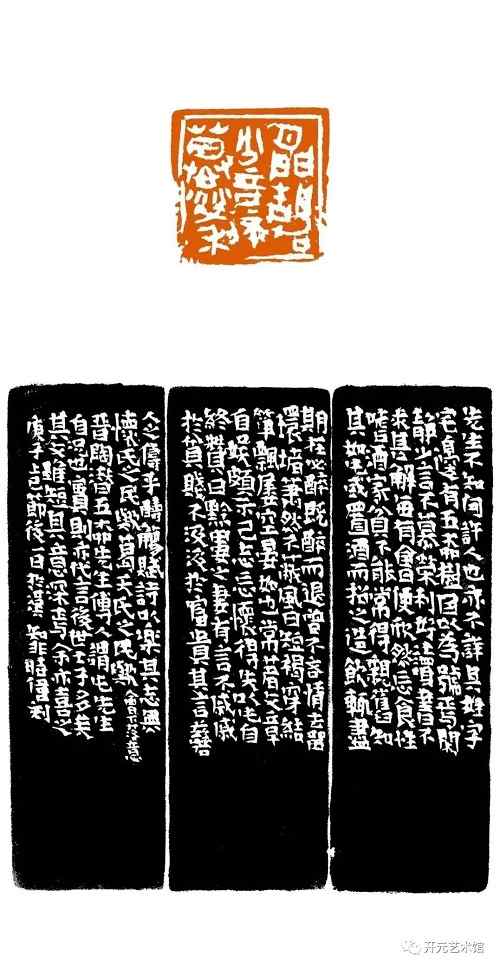 閑靜
少言不
慕榮利
先生不知何許人也亦不詳其姓字
宅邊有五柳樹因以為號焉閑
靜少言不慕榮利好讀書不
求甚解每有會便欣然忘食性
嗜酒家貧不能常得親舊知
其如此或置酒而招之造飲輒盡
期在必醉既醉而退曾不吝情去留
環堵蕭然不蔽風日短褐穿結
簞瓢屢空晏如也常著文章
自娛頗示己志忘懷得失以此自
終贊曰黔婁之妻有言不戚戚
於貧賤不汲汲於富貴其言茲
人之儔乎酣觴賦詩以樂其志無
懷氏之民歟葛天氏之民歟會下落意
晉陶潛五柳先生傳人謂此先生
自況也實則亦代言後世士子多矣
其文雖短其意深焉余亦喜之
庚子節後一日於
开元艺术馆